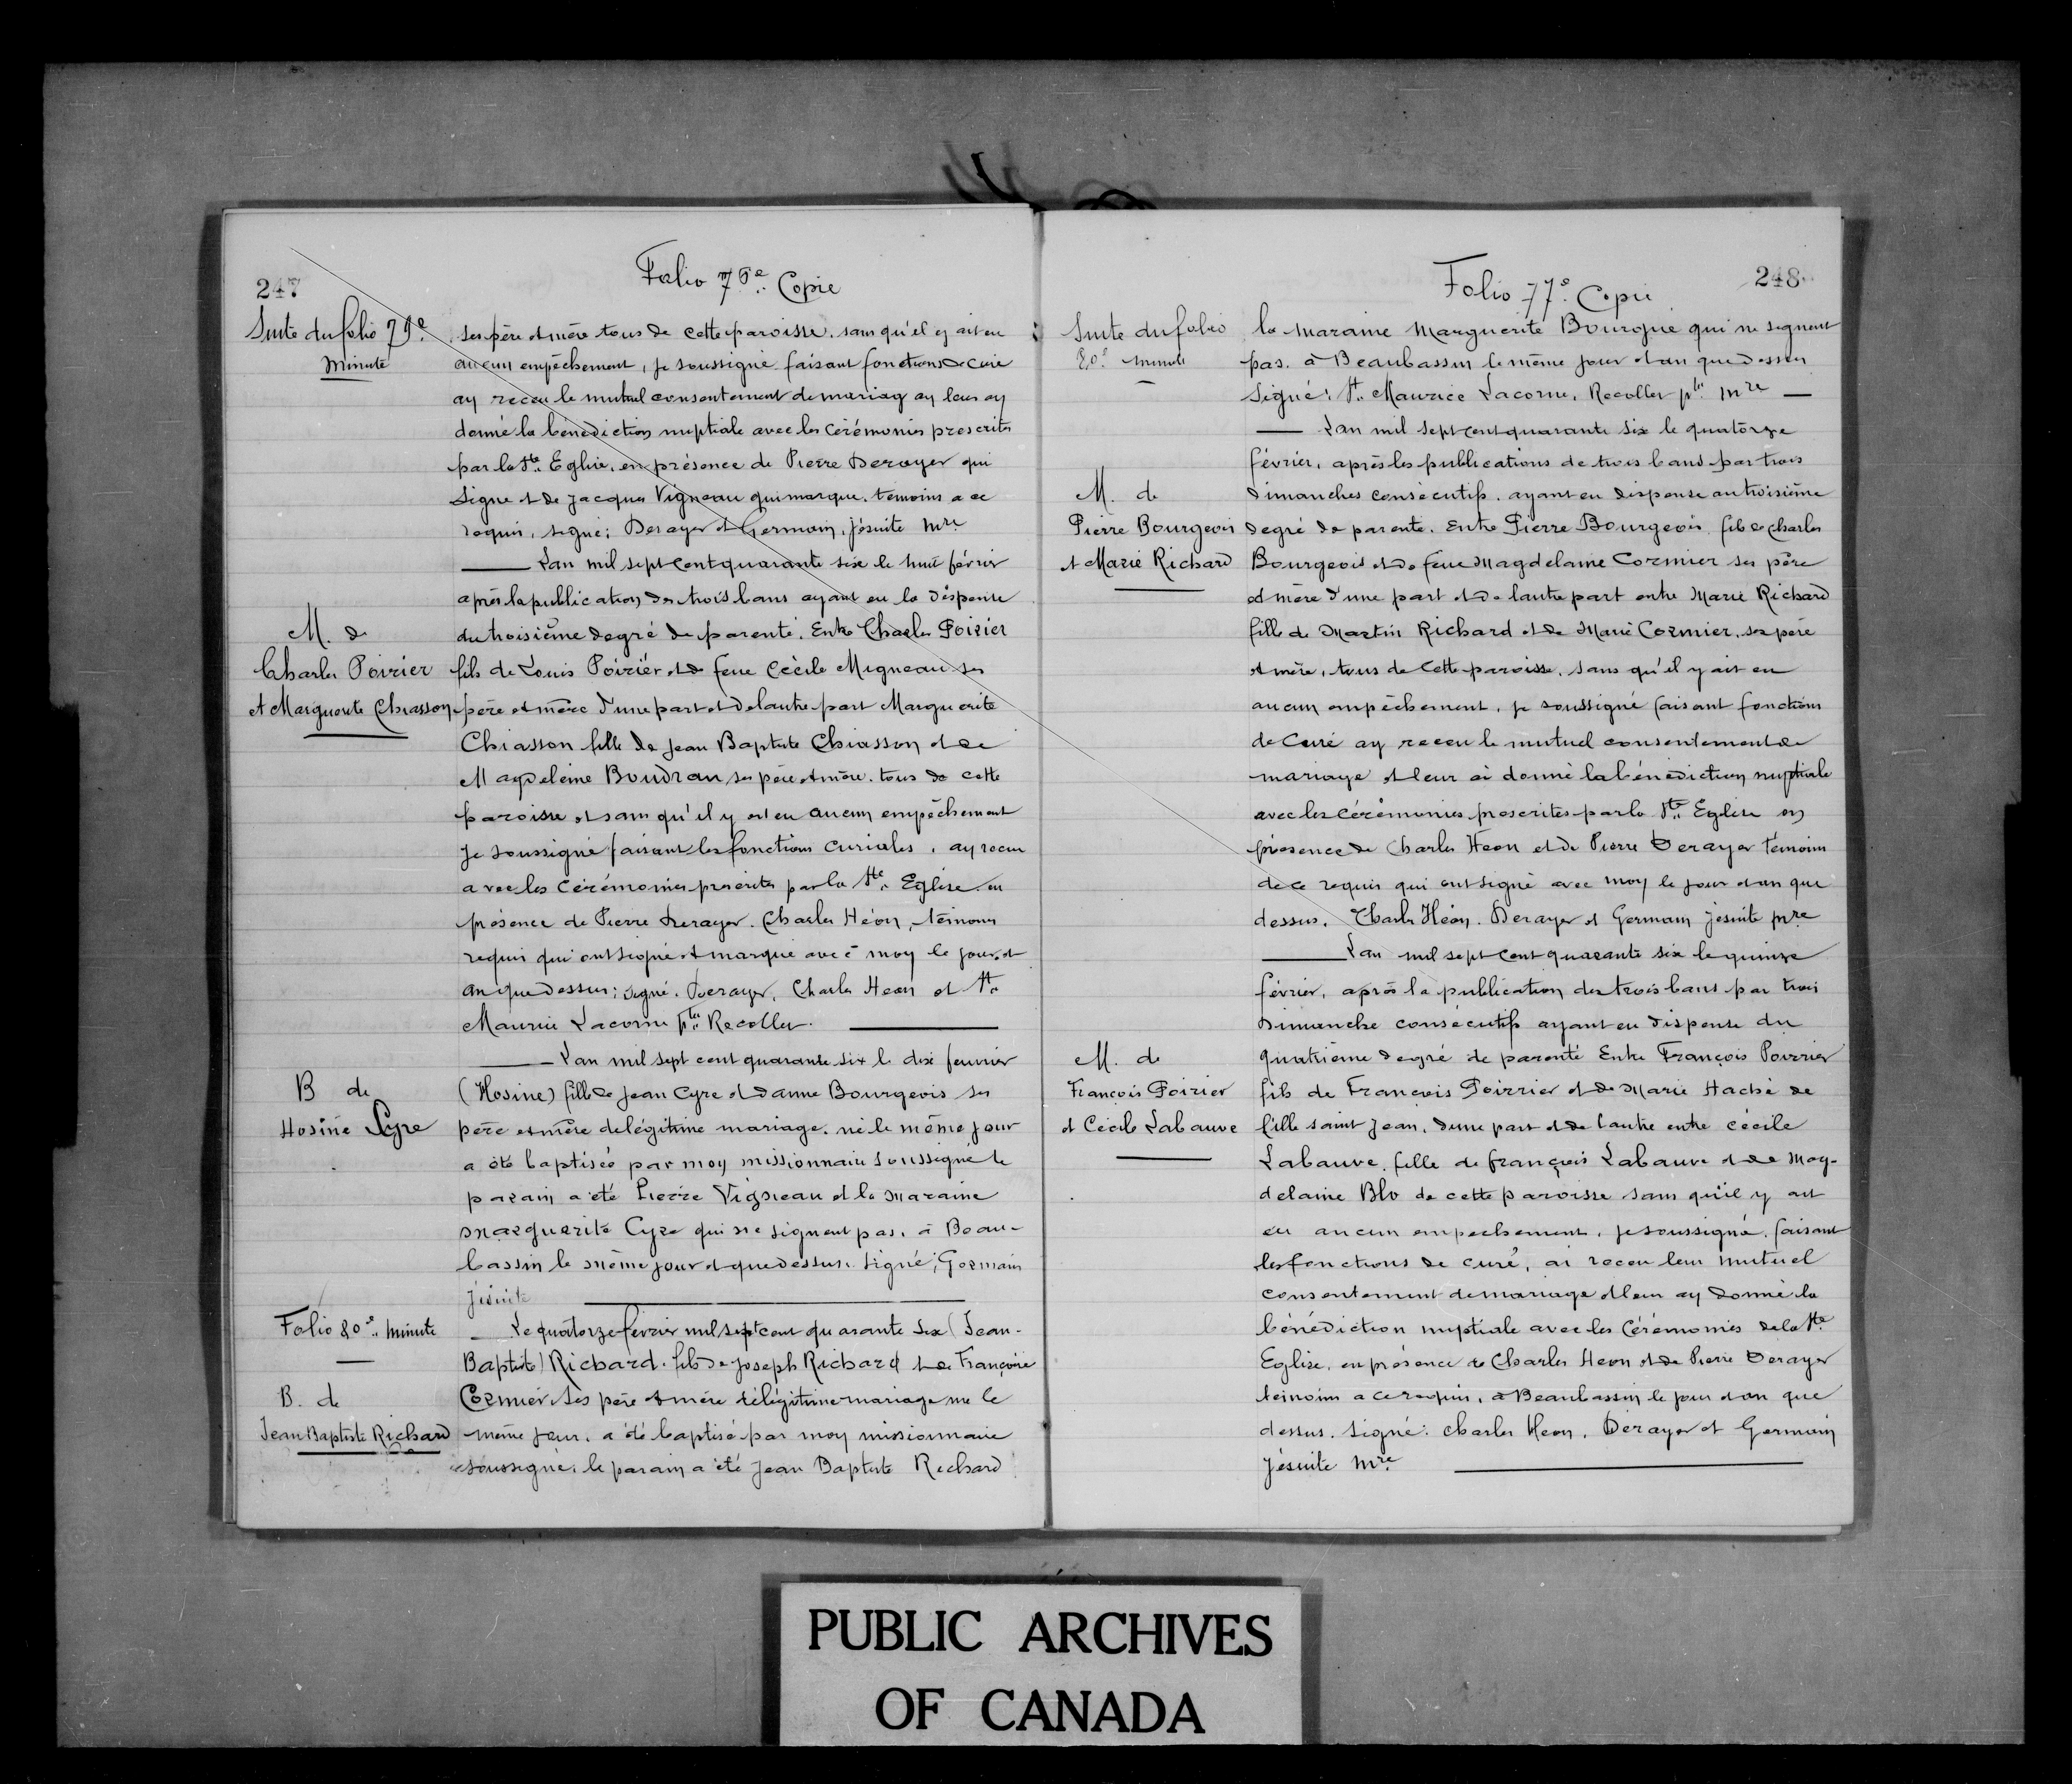 247
Folio 76e.. Copie
Suite du folio 79e.
Minute
ses père et mère tous de cette paroisse. sans qu'il y ait eu
aucun empêchement, je soussigné faisant fonctions de curé
ay receu le mutuel consentement de mariag ay leur ay
donné la bénédiction nuptiale avec les cérémonies prescrites
par la Ste.. Eglise, en présence de Pierre Derayer qui
signe et de Jacques Vigneau qui marque. temoins a ce
requis, signé; Derayer et Germain, Jésuite Mre
Lan mil sept cent quarante six le huit février
après la publication des trois bans ayant eu la dispense
du troisième degré de parenté. Entre Charles Poirier
M. de
Charles Poirier
et Marguerite Chiasson
fils de Louis Poirier et de feue Cécile Migneau ses
père et mère d'une part et de lautre part Marguerite
Chiasson fille de Jean Baptiste Chiasson et de
Magdeleine Boudran ses père et mère. tous de cette
paroisse et sans qu'il y est eu aucun empêchement
je soussigné faisant les fonctions curiales, ay receu
avec les cérémonies prescrites par la Ste.. Eglise. en
présence de Pierre Derayer. Charles Héon, témoins
requis qui ont signé et marqué avec moy le jour et
an que dessus; signé. Derayer, Charles Heon et St..
Maurice Lacorne ptre.. Recollet.
Lan mil sept cent quarante six le dix feuvrier
B de
Hosine Cyre
(Hosine) fille de Jean Cyre et danne Bourgeois ses
père et mère de légitime mariage. né le même jour
a été baptisée par moy missionnaire soussigné le
parain a été Pierre Vigneau et la maraine
Marguerite Cyre qui ne signent pas. à Beau-
bassin le même jour et que dessus. signé; Germain
Jésuite
Folio 80e.. Minute
Le quatorze fevrier mil sept cent quarante six (Jean-
Baptiste) Richard. fils de Joseph Richard et de Françoise
B. de
Jean Baptiste Richard
Cormier ses père et mère de légitime mariage né le
même jour. a été baptisé par moy missionnaire
soussigné. le parain a été Jean Baptiste Richard
248
Folio 77e. Copie
Suite du folio
80e. minute
la maraine Marguerite Bourgue qui ne signent
pas. à Beaubassin le même jour et an que dessus
signé: St.. Maurice Lacorne, Recollet ptre. Mre
Lan mil sept cent quarante six le quatorze
février, après les publications de trois bans par trois
M. de
Pierre Bourgeois
et Marie Richard
dimanches consécutifs. ayant eu dispense au troisième
degré de parenté. Entre Pierre Bourgeois fils de Charles
Bourgeois et de feue Magdelaine Cormier ses père
et mère d'une part et de lautre part entre Marie Richard
fille de Martin Richard et de Marie Cormier, ses père
et mère, tous de cette paroisse, sans qu'il y ait eu
aucun empêchement, je soussigné faisant fonctions
de Curé ay receu le mutuel consentement de
mariage et leur ai donné la bénédiction nuptiale
avec les cérémonies prescrites par la Ste.. Eglise en
présence de Charles Heon et de Pierre Derayer témoins
de ce requis qui ont signé avec moy le jour et an que
dessus. Charles Héon. Derayer et Germain jésuite pre
Lan mil sept cent quarante six le quinze
février, après la publication des trois bans par trois
Dimanche consécutifs ayant eu dispense du
M. de
François Poirier
et Cécile Labauve
quatrième degré de parenté Entre François Poirrier
fils de François Poirrier et de Marie Haché de
fille saint Jean, dune part et de l'autre entre cécile
Labauve, fille de françois Labauve et de Mag-
delaine Blo de cette paroisse sans qu'il y ait
eu aucun empechement, je soussigné, faisant
les fonctions de curé, ai receu leur mutuel
consentement de mariage et leur ay donné la
bénédiction nuptiale avec les cérémonies de la Ste
Eglise, en présence de Charles Heon et de Pierre Derayer
temoins a ce requis, à Beaubassin le jour et an que
dessus. signé: charles Heon, Derayer et Germain
Jésuite Mre.
PUBLIC ARCHIVES
OF CANADA